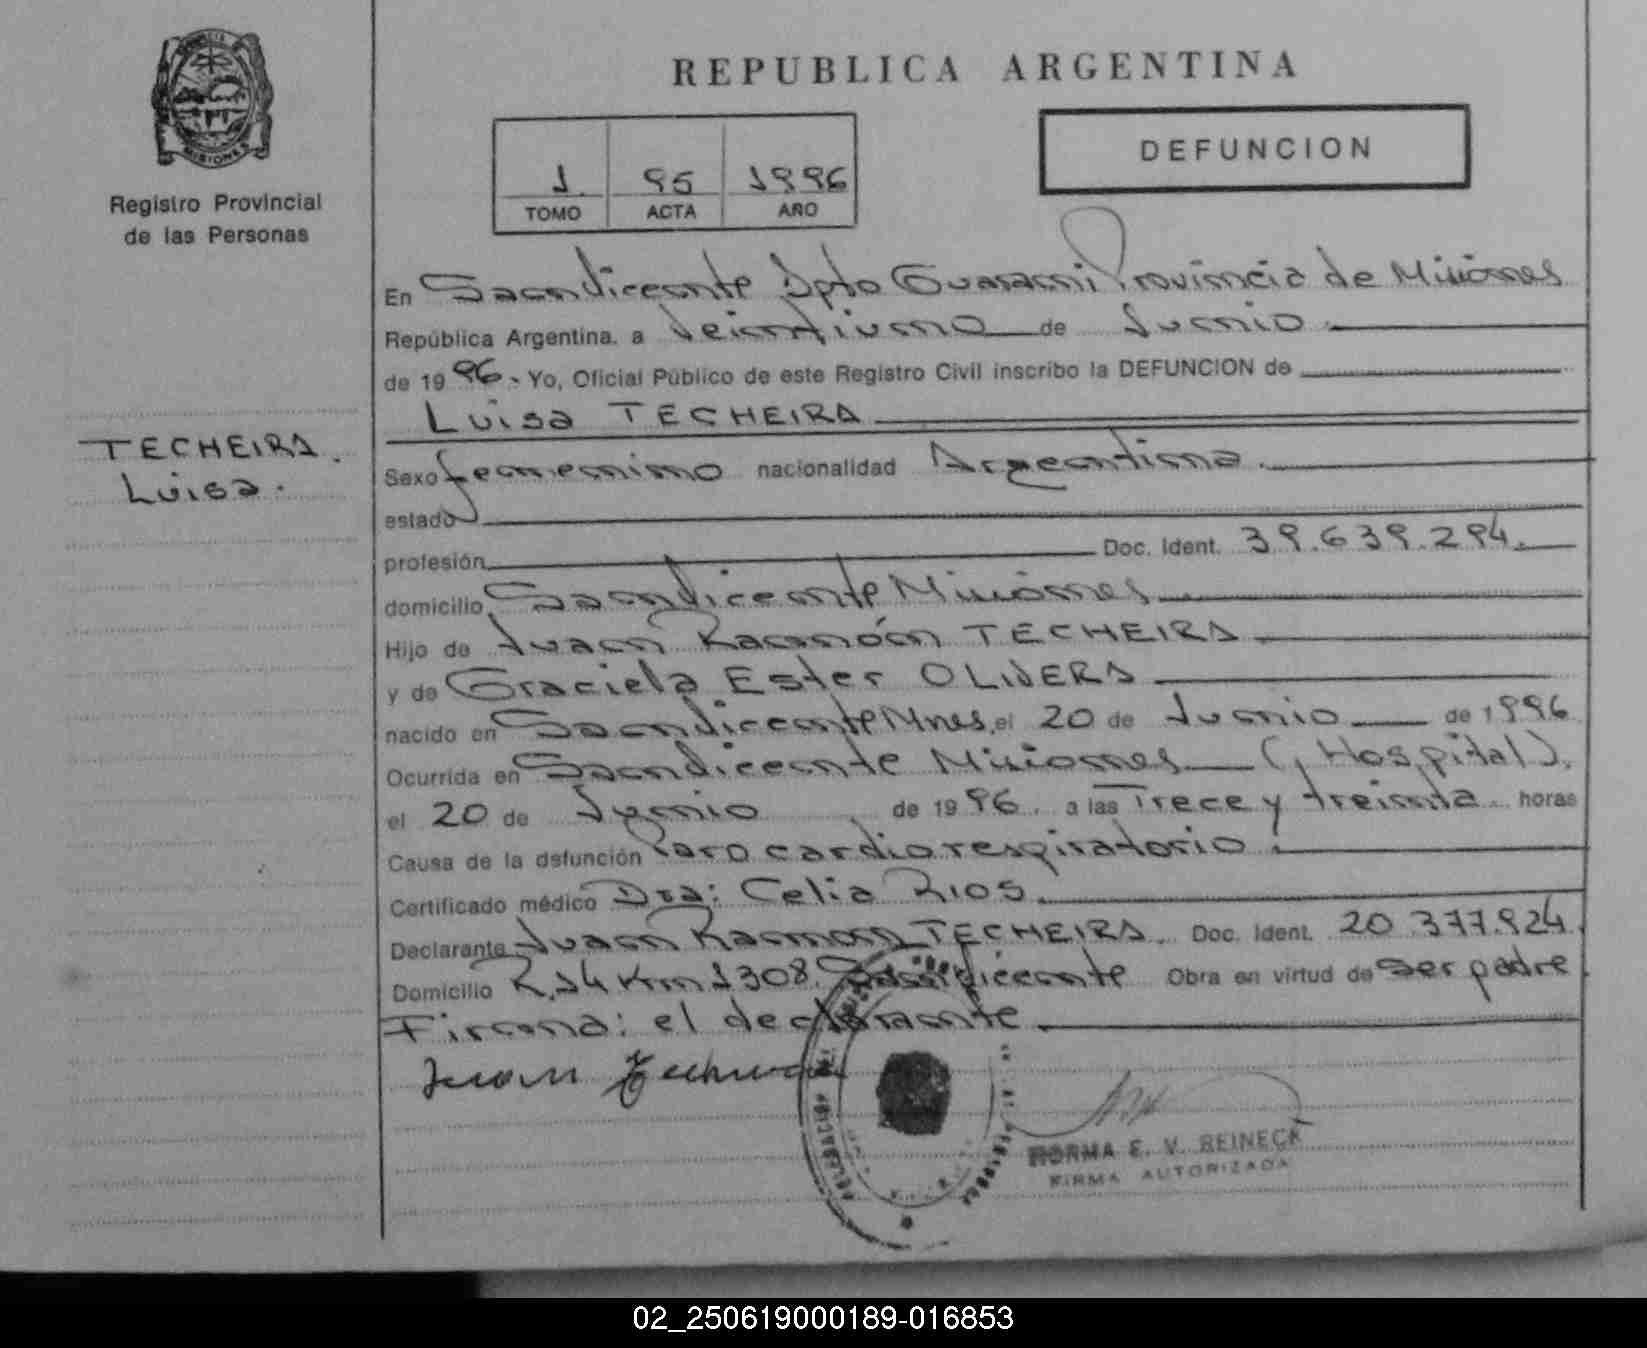 REPUBLICA ARGENTINA
DEFUNCION
1. 95 1996
TOMO ACTA AÑO
MISIONES
Registro Provincial
de las Personas
TECHEIRA.
Luisa.
En Sanvicente Dpto Guarani Provincia de Misiones
República Argentina, a Veintiuno de Junio.
de 1996. Yo, Oficial Público de este Registro Civil inscribo la DEFUNCION de
Luisa TECHEIRA
Sexo femenino nacionalidad Argentina.
estado
profesión Doc. Ident. 39.639.294.
domicilio Sanvicente Misiones
Hijo de Juan Ramón TECHEIRA
y de Graciela Ester OLIVERA
nacido en Sanvicente Mnes, el 20 de Junio de 1996
Ocurrida en Sanvicente Misiones (Hospital).
el 20 de Junio de 1996. a las Trece y treinta horas
Causa de la defunción Paro cardiorespiratorio.
Certificado médico Dra: Celia RIOS.
Declarante Juan Ramon TECHEIRA. Doc. Ident. 20 377.924.
Domicilio R.14 Km 1308. Sanvicente Obra en virtud de ser padre
Firmna: el declarante.
Juan Techeira
NORMA E. V. REINECK
FIRMA AUTORIZADA
02_250619000189-016853